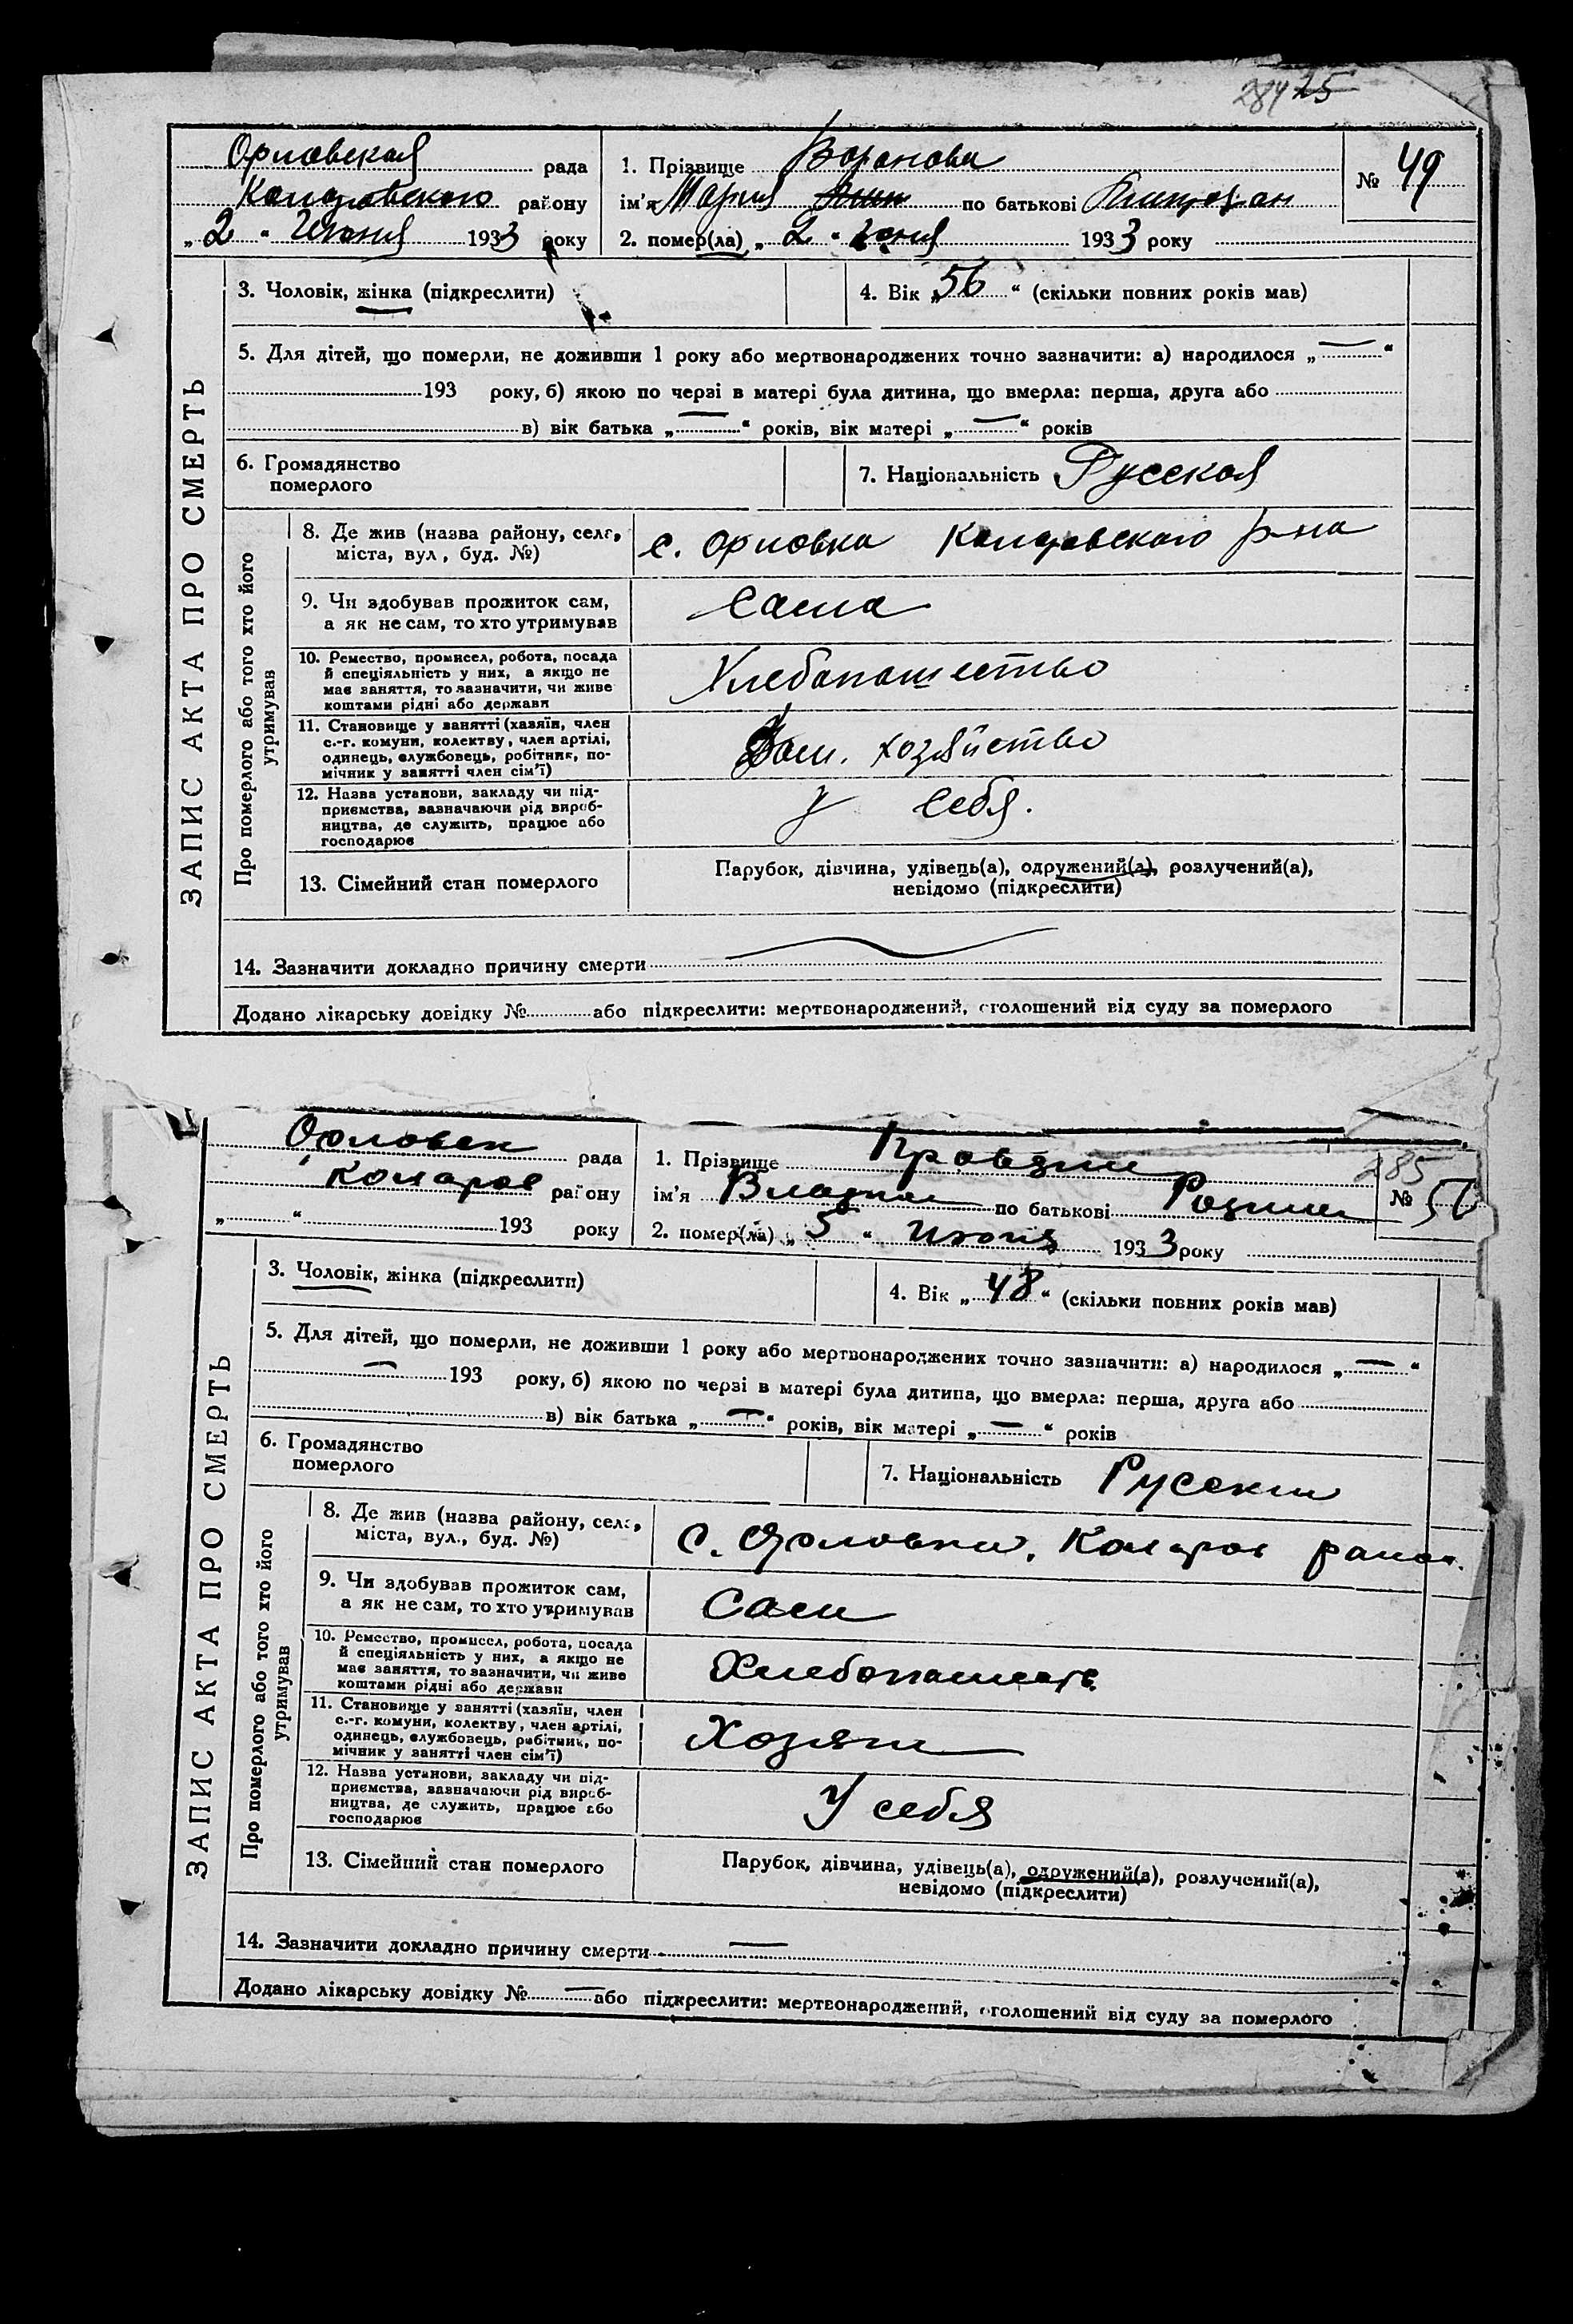 284 25
Орловская рада
Комаровского району
„ 2 “ Июня 1933 року
1. Прізвище Воронова
ім'я Мария по батькові
2. помер(ла) „ 2 “ Июня 1933 року
№ 49
ЗАПИС АКТА ПРО СМЕРТЬ
3. Чоловік, жінка (підкреслити)
4. Вік „ 56 “ (скільки повних років мав)
5. Для дітей, що померли, не доживши 1 року або мертвонароджених точно зазначити: а) народилося „ — “
193 року, б) якою по черзі в матері була дитина, що вмерла: перша, друга або
в) вік батька „ — “ років, вік матері „ — “ років
6. Громадянство
померлого
7. Національність Русская
Про померлого або того хто його
утримував
8. Де жив (назва району, села,
міста, вул., буд. №)
с. Орловка Комаровского р-на
9. Чи здобував прожиток сам,
а як не сам, то хто утримував
Сама
10. Ремество, промисел, робота, посада
й спеціяльність у них, а якщо не
має заняття, то зазначити, чи живе
коштами рідні або держави
Хлебопашество
11. Становище у занятті (хазяїн, член
с.-г. комуни, колективу, член артілі,
одинець, службовець, робітник, по-
мічник у занятті член сім'ї)
Дом. хозяйство
12. Назва установи, закладу чи під-
приємства, зазначаючи рід вироб-
ництва, де служить, працює або
господарює
У себя.
13. Сімейний стан померлого
Парубок, дівчина, удівець(а), одружений(а), розлучений(а),
невідомо (підкреслити)
14. Зазначити докладно причину смерти
Додано лікарську довідку № або підкреслити: мертвонароджений, оголошений від суду за померлого
Орловск рада
Комаров району
„ “ 193 року
1. Прізвище
ім'я по батькові
2. помер(ла) „ 5 “ Июня 1933 року
285
№
ЗАПИС АКТА ПРО СМЕРТЬ
3. Чоловік, жінка (підкреслити)
4. Вік „ 48 “ (скільки повних років мав)
5. Для дітей, що померли, не доживши 1 року або мертвонароджених точно зазначити: а) народилося „ — “
— 193 року, б) якою по черзі в матері була дитина, що вмерла: перша, друга або
в) вік батька „ — “ років, вік матері „ — “ років
6. Громадянство
померлого
7. Національність Русский
Про померлого або того хто його
утримував
8. Де жив (назва району, села,
міста, вул., буд. №)
с. Орловки, Комаров район.
9. Чи здобував прожиток сам,
а як не сам, то хто утримував
Сам
10. Ремество, промисел, робота, посада
й спеціяльність у них, а якщо не
має заняття, то зазначити, чи живе
коштами рідні або держави
Хлебопашеств
11. Становище у занятті (хазяїн, член
с.-г. комуни, колективу, член артілі,
одинець, службовець, робітник, по-
мічник у занятті член сім'ї)
Хозяин
12. Назва установи, закладу чи під-
приємства, зазначаючи рід вироб-
ництва, де служить, працює або
господарює
У себя
13. Сімейний стан померлого
Парубок, дівчина, удівець(а), одружений(а), розлучений(а),
невідомо (підкреслити)
14. Зазначити докладно причину смерти —
Додано лікарську довідку № — або підкреслити: мертвонароджений, оголошений від суду за померлого